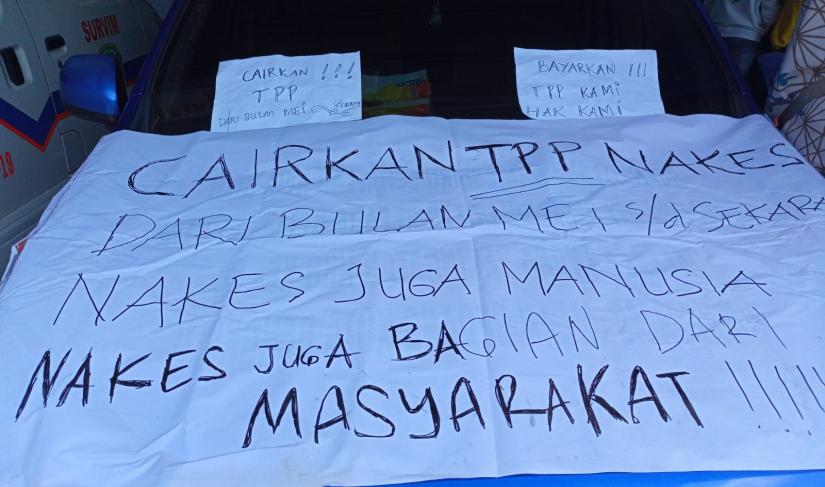 SURVIM
19
CAIRKAN !!!
TPP
DARI BULAN MEI
BAYARKAN !!!
TPP KAMI
HAK KAMI
CAIRKAN TPP NAKES
DARI BULAN MEI s/d SEKARA
NAKES JUGA MANUSIA
NAKES JUGA BAGIAN DARI
MASYARAKAT !!!!!